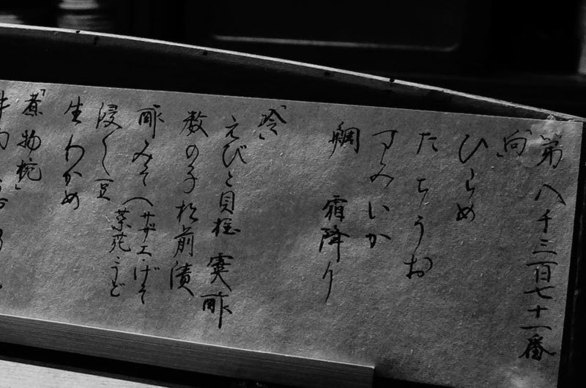 第八千三百七十一番
「向」
ひらめ
たちうお
すみいか
鯛　霜降り
「冷」
えびと貝柱　実酢
数の子松前漬
酢みそ（サザエ・げそ
菜花・うど
浸し豆
生わかめ
「煮物椀」